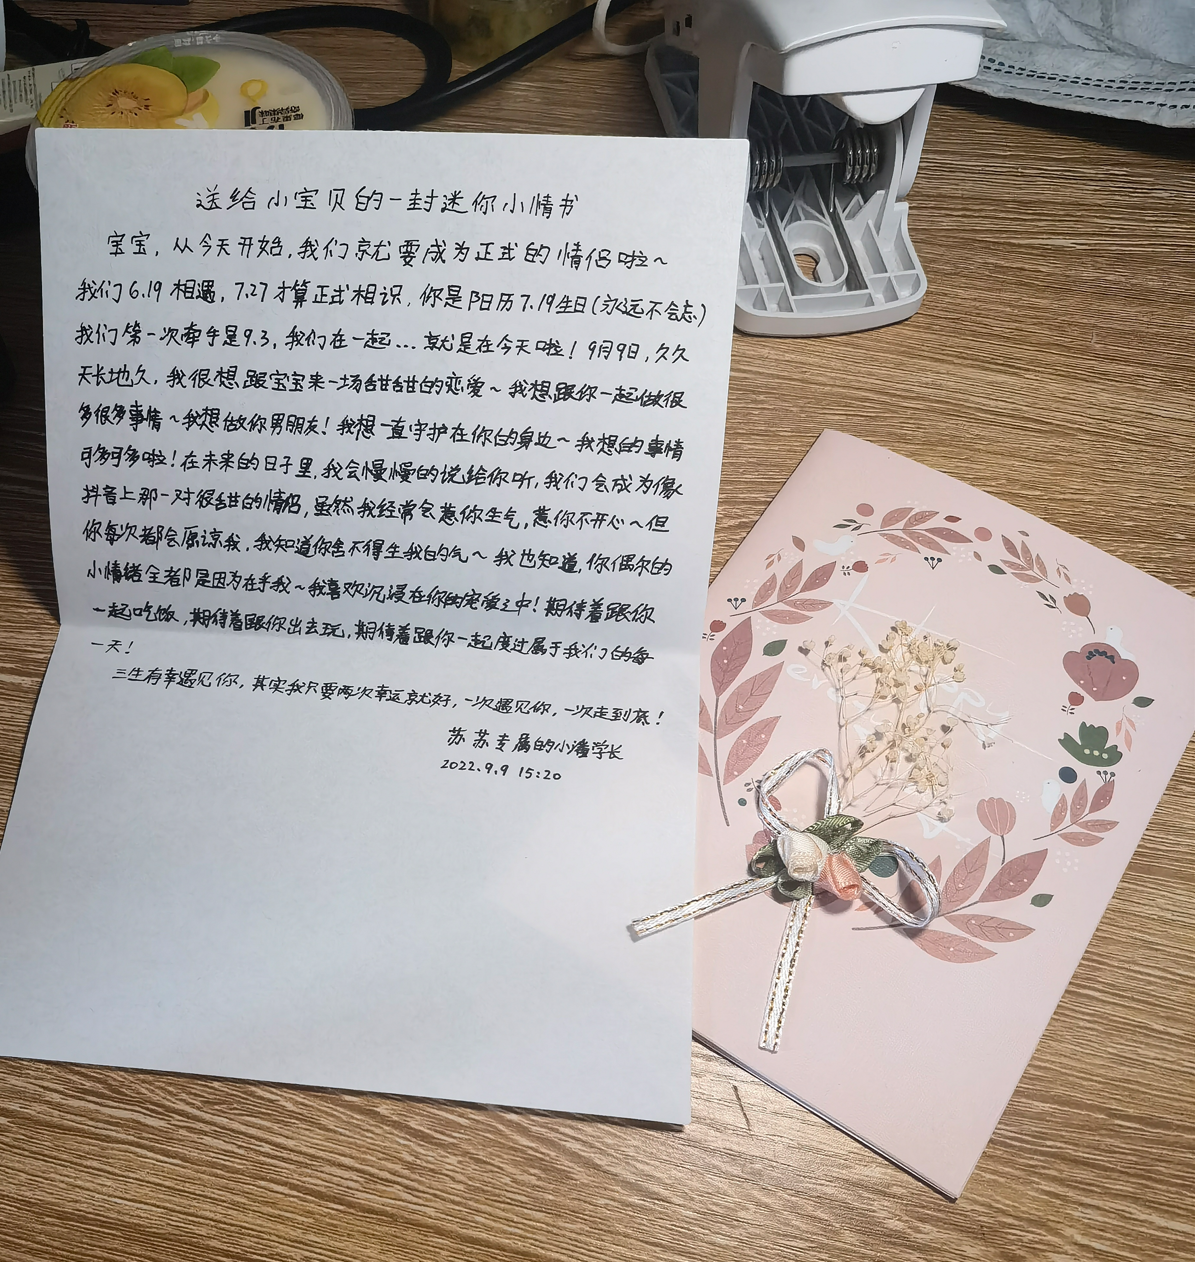 送给小宝贝的一封迷你小情书
宝宝，从今天开始，我们就要成为正式的情侣啦～
我们6.19相遇，7.27才算正式相识，你是阳历7.19生日(永远不会忘)
我们第一次牵手是9.3，我们在一起…就是在今天啦！9月9日，久久
天长地久，我很想跟宝宝来一场甜甜的恋爱～我想跟你一起做很
多很多事情～我想做你男朋友！我想一直守护在你的身边～我想的事情
可多可多啦！在未来的日子里，我会慢慢的说给你听，我们会成为像
抖音上那一对很甜的情侣，虽然我经常会惹你生气，惹你不开心～但
你每次都会原谅我，我知道你舍不得生我的气～我也知道，你偶尔的
小情绪全都是因为在乎我～我喜欢沉浸在你的宠爱之中！期待着跟你
一起吃饭，期待着跟你出去玩，期待着跟你一起度过属于我们的每
一天！
三生有幸遇见你，其实我只要两次幸运就好，一次遇见你，一次走到底！
苏苏专属的小潘学长
2022.9.9 15:20